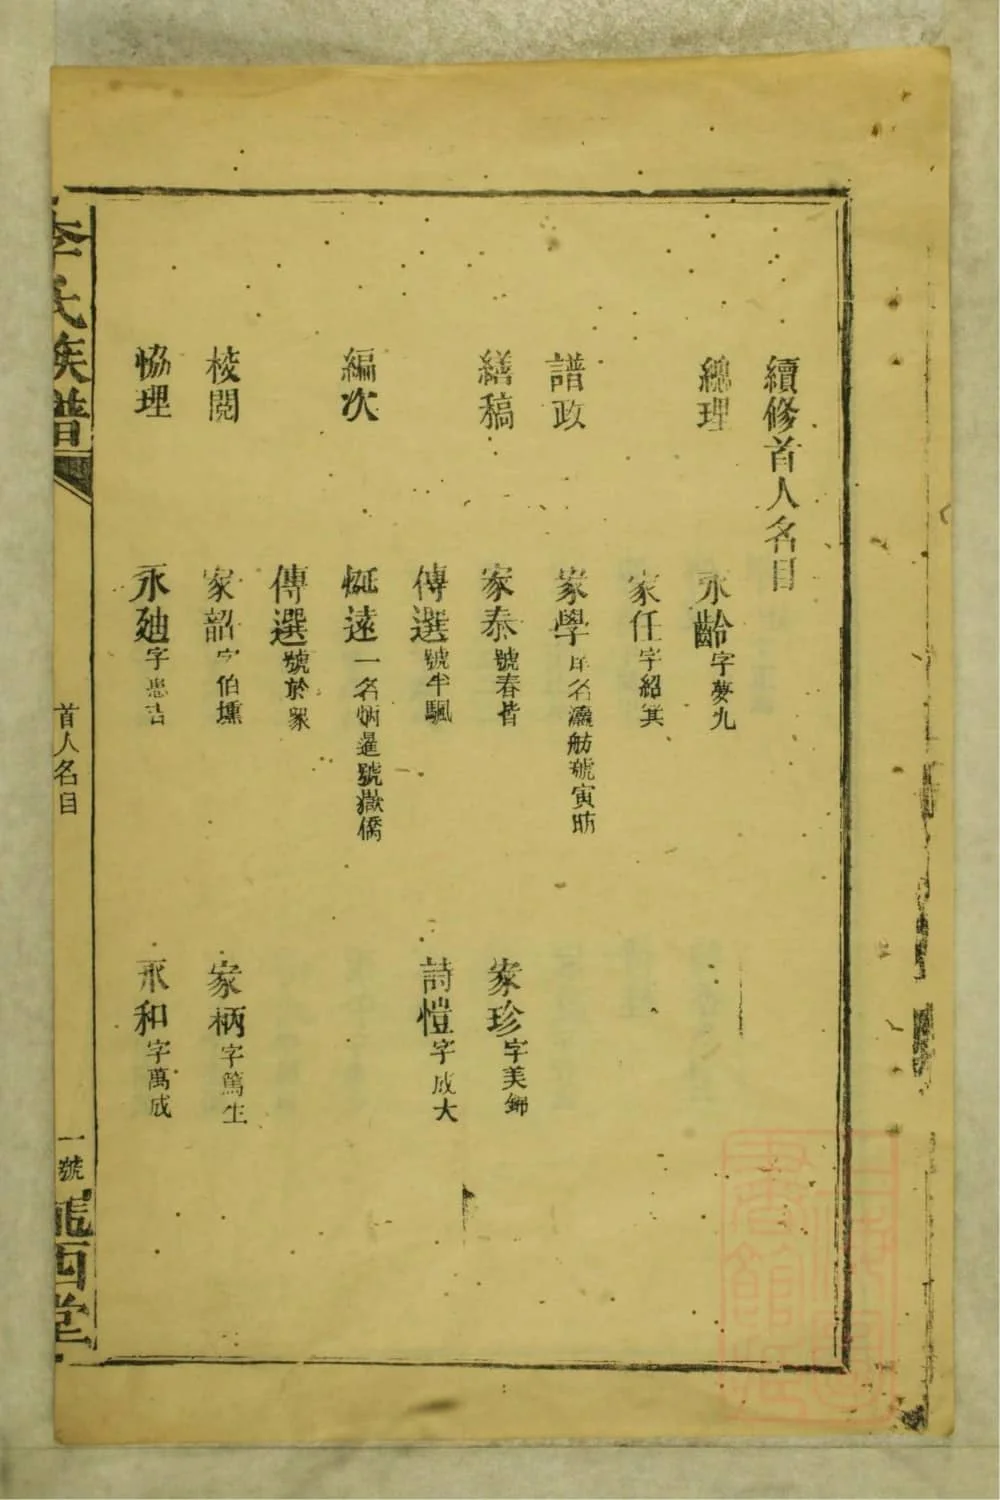 續修首人名目
總理 永齡字夢九
家任字紹箕
譜政 家學庠名灝舫號寅昉
繕稿 家泰號春皆 家珍字美錦
傳選號半颿 詩愷字成大
編次 烻遠一名炳暹號嶽僑
傳選號於眾
校閱 家韶字伯壎 家柄字篤生
協理 永廸字惠吉 永和字萬成
李氏族譜 首人名目 一號 隴西堂